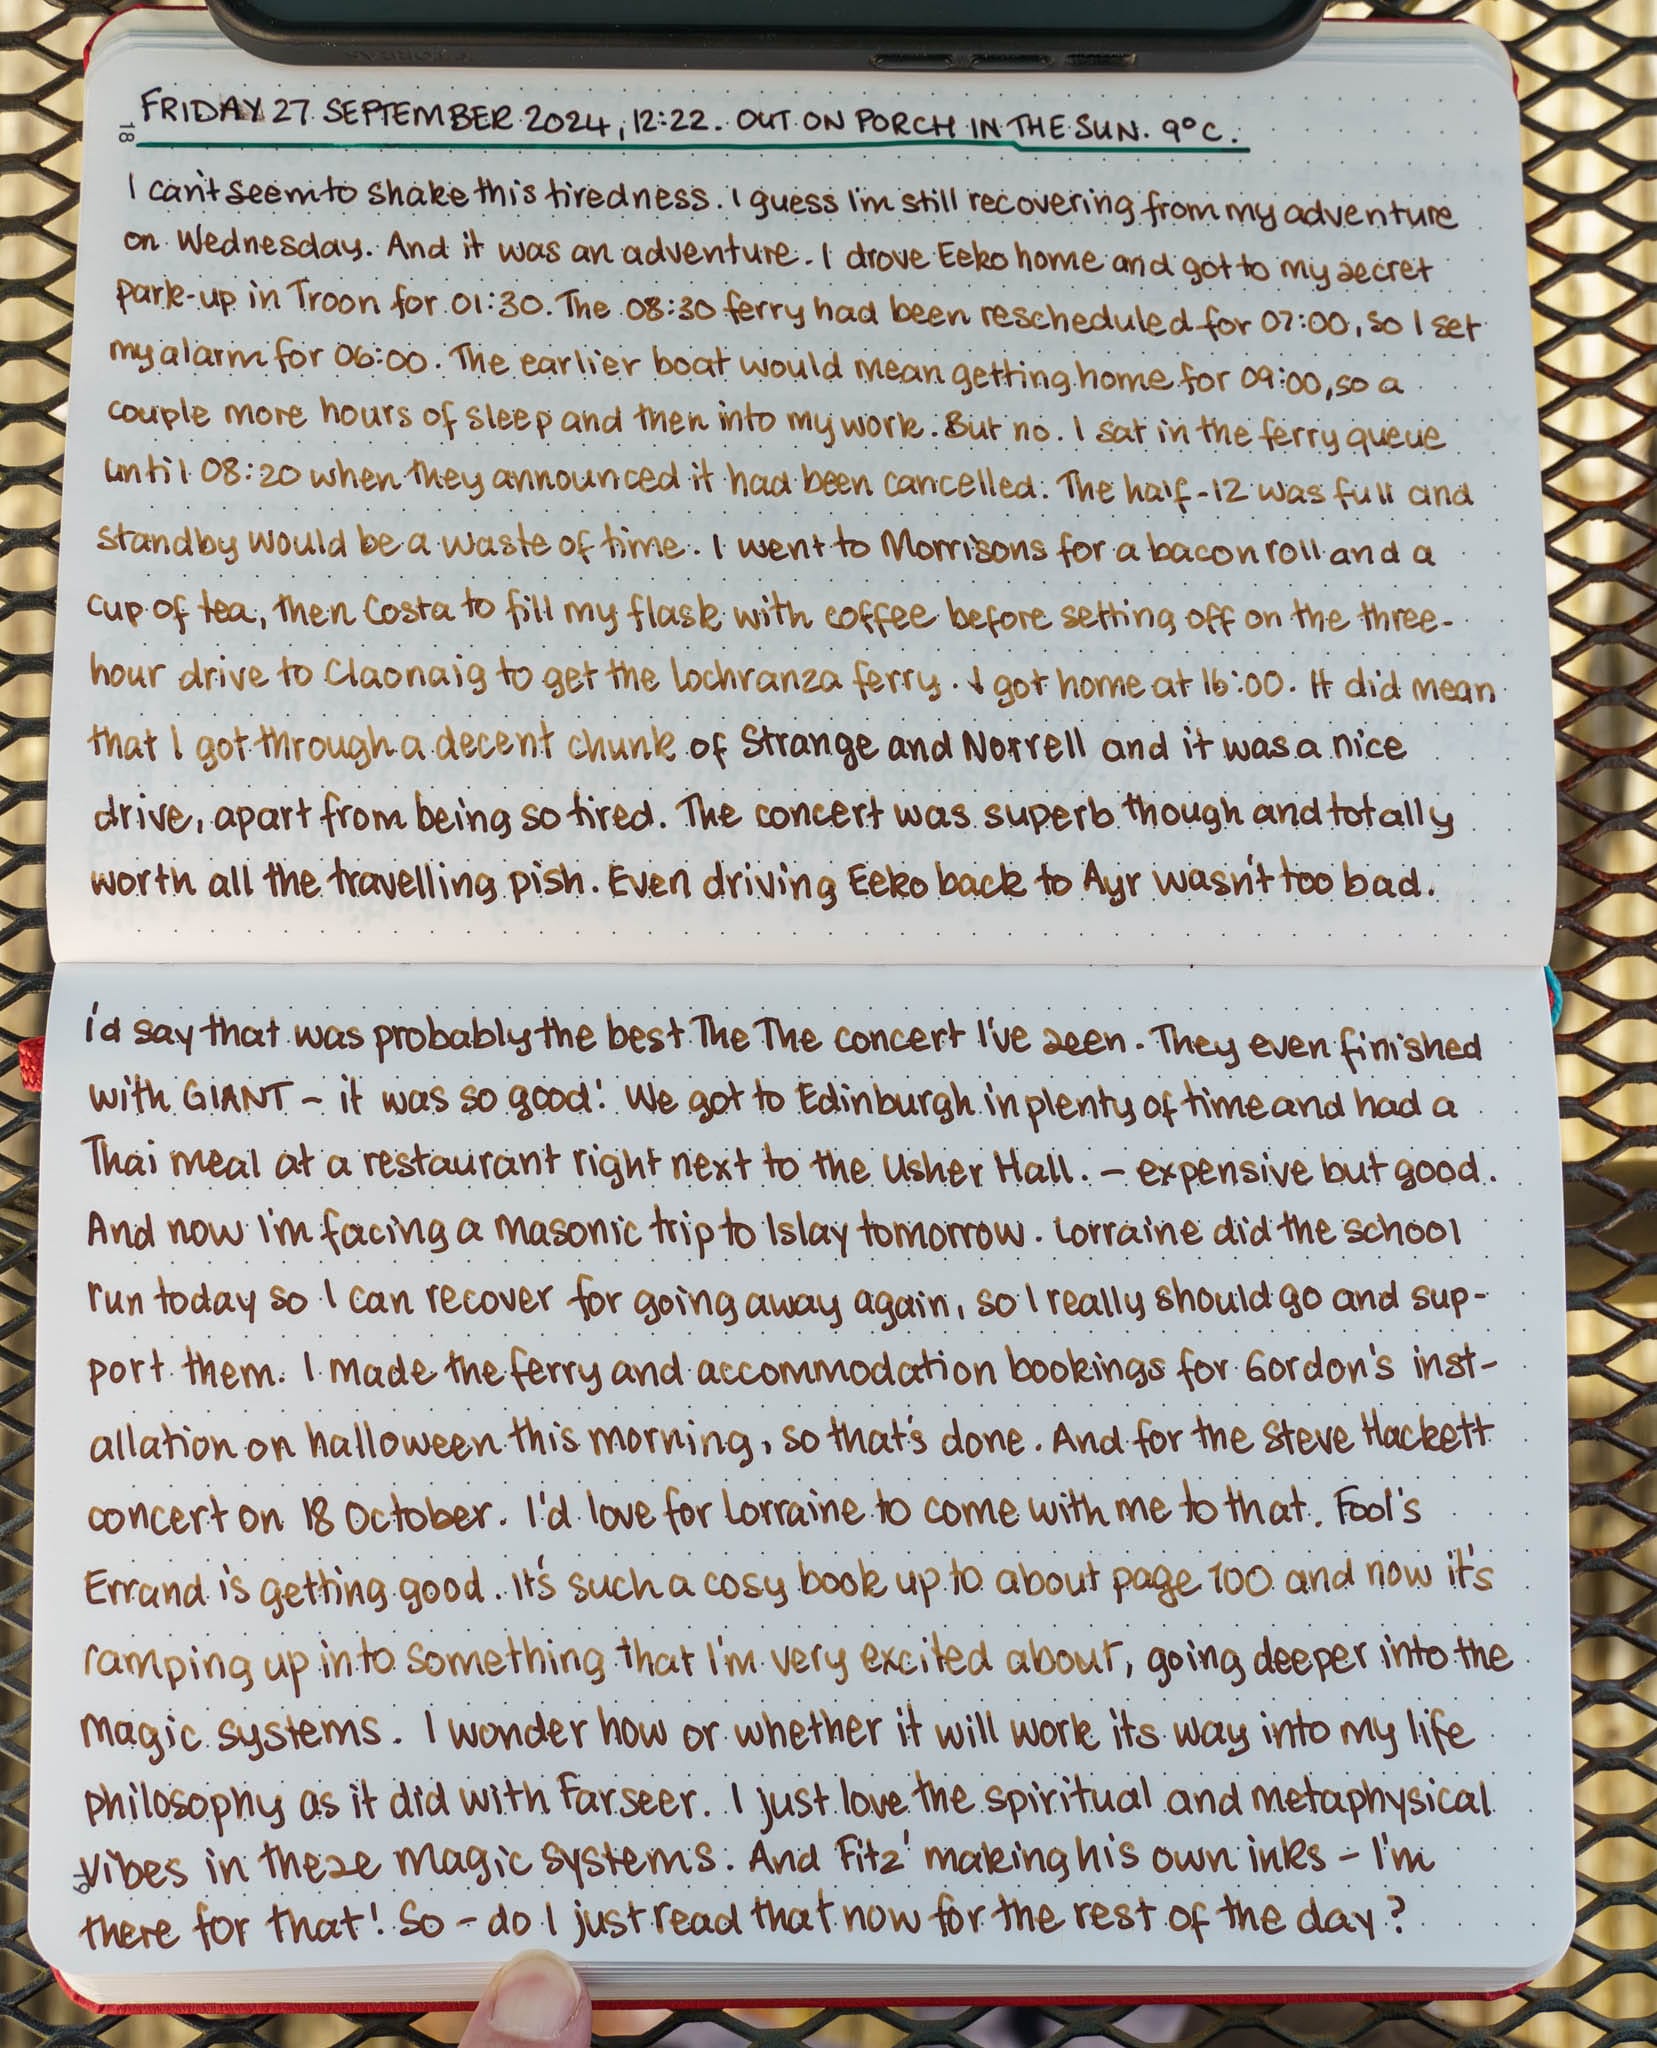 FRIDAY 27 SEPTEMBER 2024, 12:22. OUT ON PORCH IN THE SUN. 9°C.
18
I can't seem to shake this tiredness. I guess I'm still recovering from my adventure
on Wednesday. And it was an adventure. I drove Eeko home and got to my secret
park-up in Troon for 01:30. The 08:30 ferry had been rescheduled for 07:00, so I set
my alarm for 06:00. The earlier boat would mean getting home for 09:00, so a
couple more hours of sleep and then into my work. But no. I sat in the ferry queue
until 08:20 when they announced it had been cancelled. The half-12 was full and
standby would be a waste of time. I went to Morrisons for a bacon roll and a
cup of tea, then Costa to fill my flask with coffee before setting off on the three-
hour drive to Claonaig to get the Lochranza ferry. I got home at 16:00. It did mean
that I got through a decent chunk of Strange and Norrell and it was a nice
drive, apart from being so tired. The concert was superb though and totally
worth all the travelling pish. Even driving Eeko back to Ayr wasn't too bad.
I'd say that was probably the best The The concert I've seen. They even finished
with GIANT - it was so good! We got to Edinburgh in plenty of time and had a
Thai meal at a restaurant right next to the Usher Hall. - expensive but good.
And now I'm facing a Masonic trip to Islay tomorrow. Lorraine did the school
run today so I can recover for going away again, so I really should go and sup-
port them. I made the ferry and accommodation bookings for Gordon's inst-
allation on halloween this morning, so that's done. And for the Steve Hackett
concert on 18 October. I'd love for Lorraine to come with me to that. Fool's
Errand is getting good. It's such a cosy book up to about page 100 and now it's
ramping up into something that I'm very excited about, going deeper into the
magic systems. I wonder how or whether it will work its way into my life
philosophy as it did with Farseer. I just love the spiritual and metaphysical
vibes in these magic systems. And Fitz' making his own inks - I'm
19
there for that! So - do I just read that now for the rest of the day?